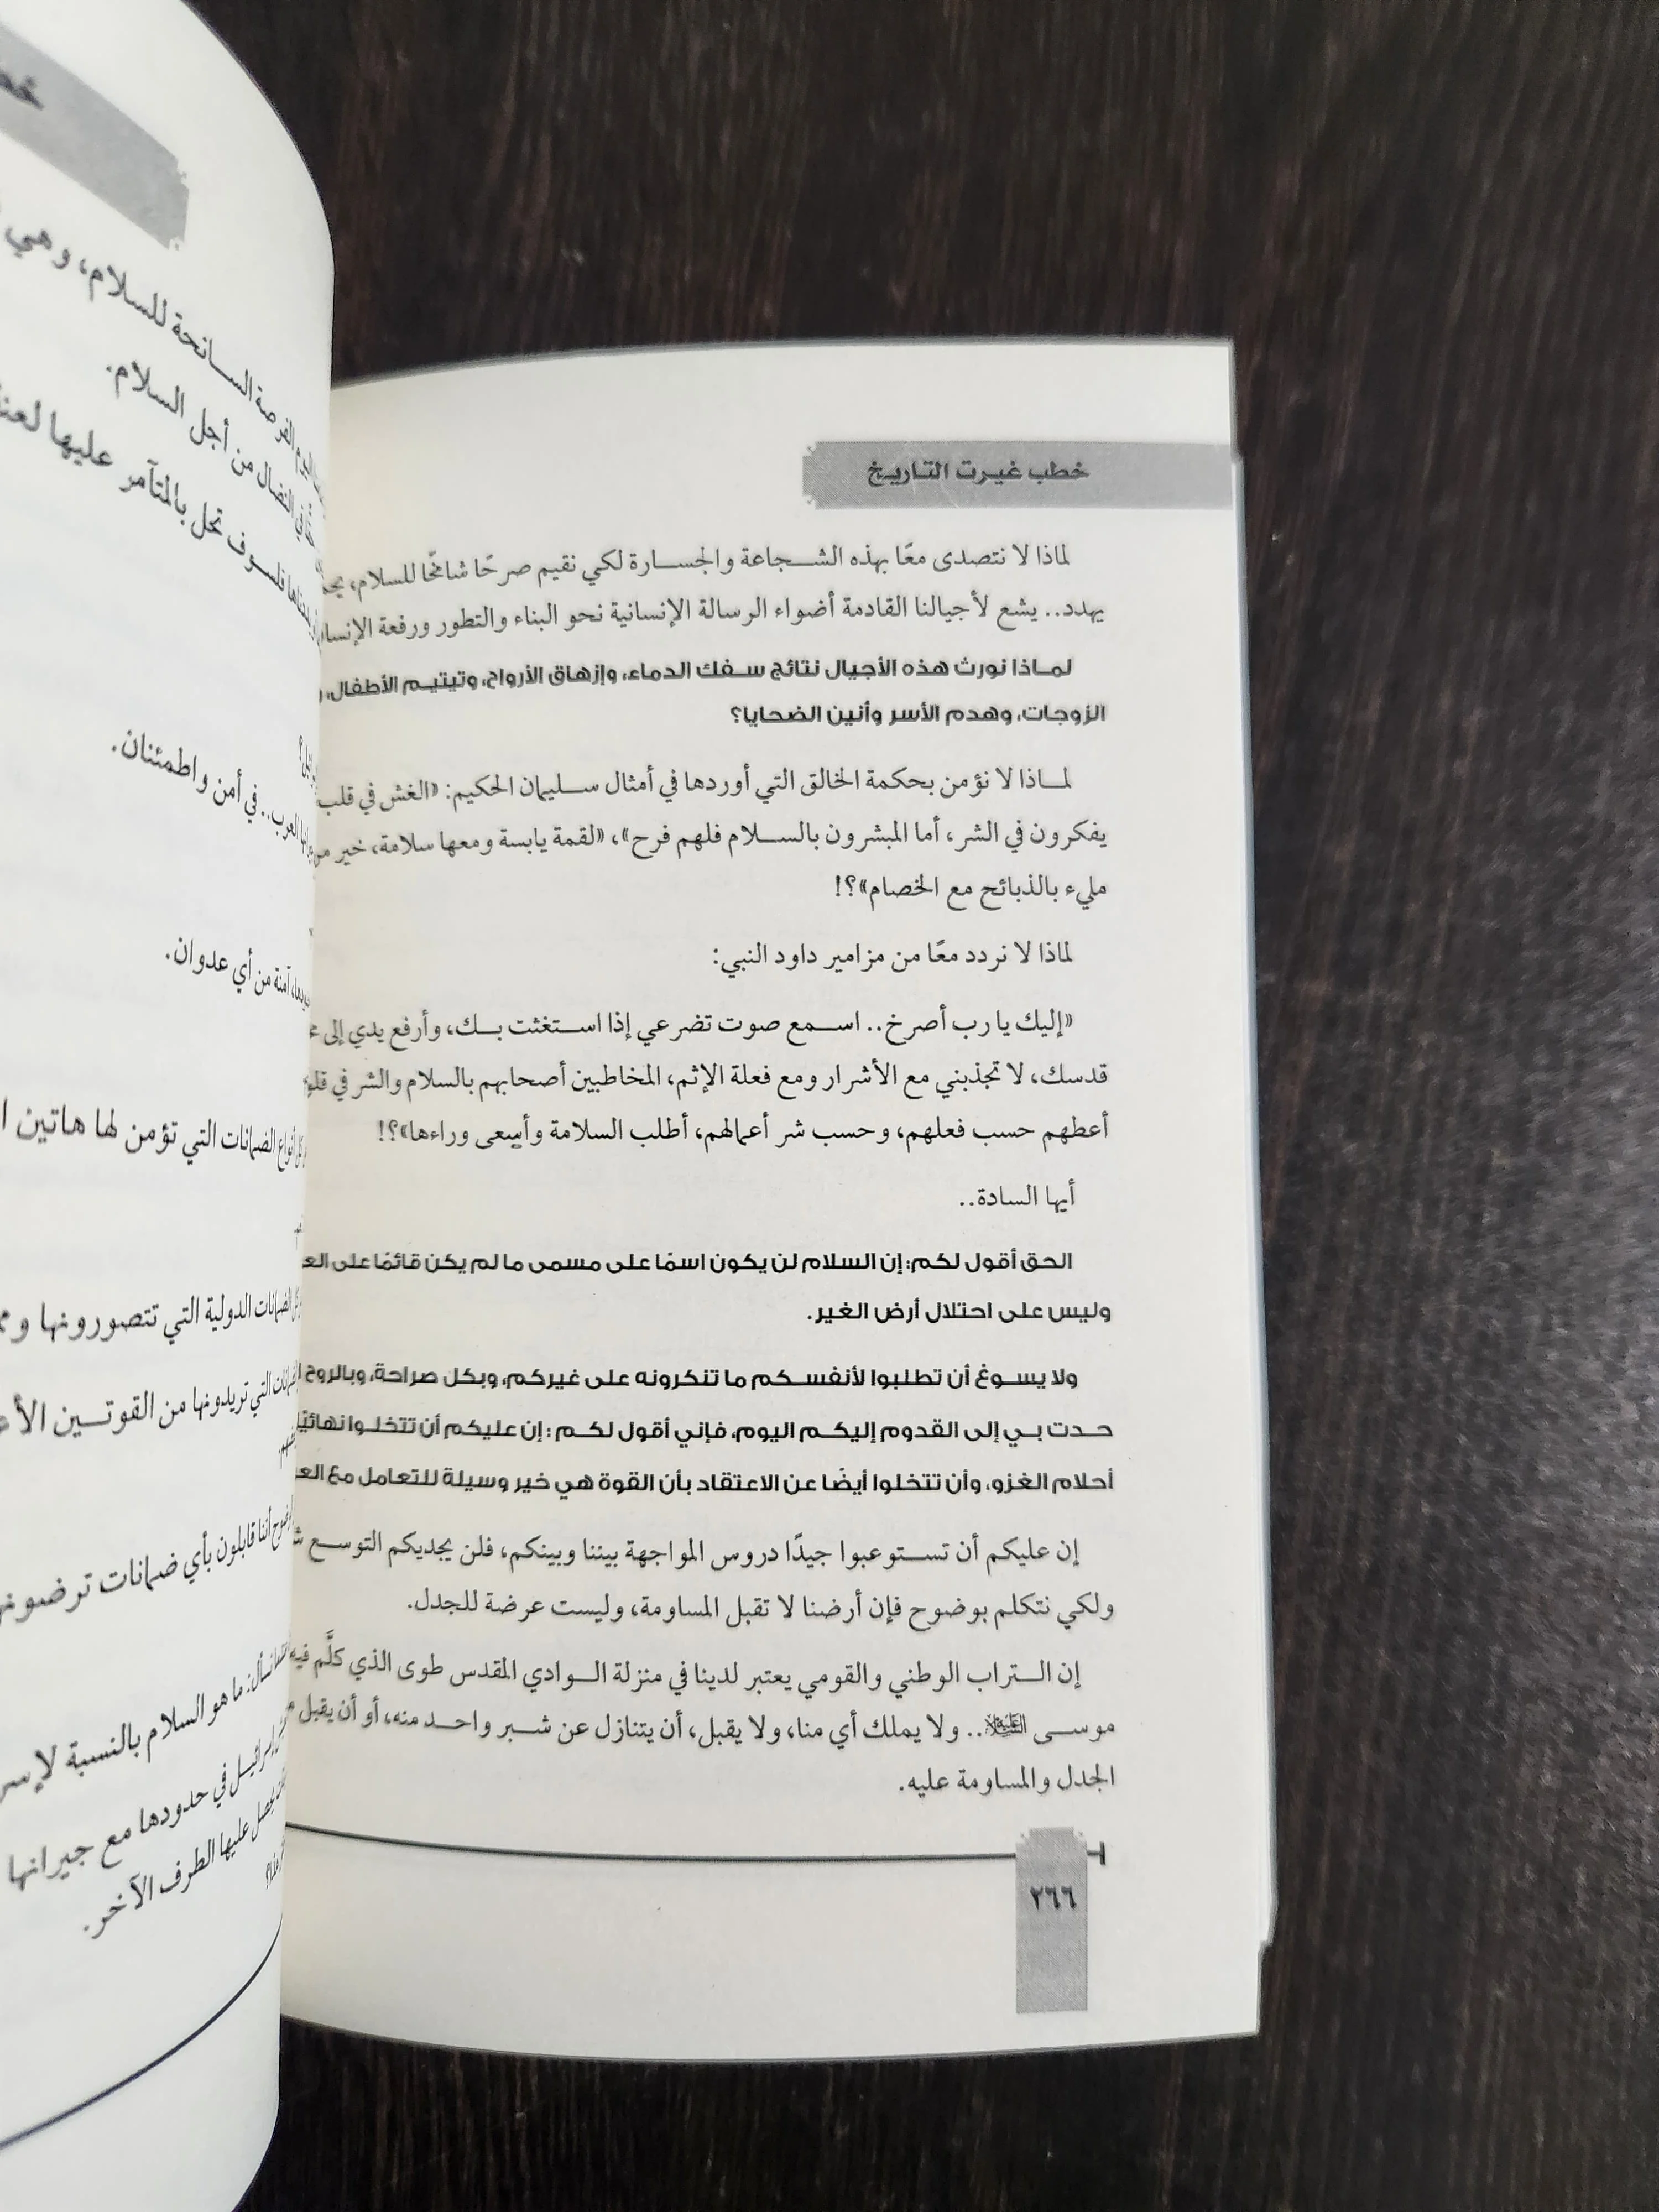 خطب غيرت التاريخ
لماذا لا نتصدى معًا بهذه الشجاعة والجسارة لكي نقيم صرحًا شامخًا للسلام،
يهدد.. يشع لأجيالنا القادمة أضواء الرسالة الإنسانية نحو البناء والتطور ورفعة
لماذا نورث هذه الأجيال نتائج سفك الدماء، وإزهاق الأرواح، وتيتيم الأطفال،
الزوجات، وهدم الأسر وأنين الضحايا؟
لماذا لا نؤمن بحكمة الخالق التي أوردها في أمثال سليمان الحكيم: «الغش في قلب
يفكرون في الشر، أما المبشرون بالسلام فلهم فرح»، «لقمة يابسة ومعها سلامة، خير من
مليء بالذبائح مع الخصام»؟!
لماذا لا نردد معًا من مزامير داود النبي:
«إليك يا رب أصرخ.. اسمع صوت تضرعي إذا استغثت بك، وأرفع يدي إلى
قدسك، لا تجذبني مع الأشرار ومع فعلة الإثم، المخاطبين أصحابهم بالسلام والشر في
أعطهم حسب فعلهم، وحسب شر أعمالهم، أطلب السلامة وأسعى وراءها»؟!
أيها السادة..
الحق أقول لكم: إن السلام لن يكون اسمًا على مسمى ما لم يكن قائمًا على
وليس على احتلال أرض الغير.
ولا يسوغ أن تطلبوا لأنفسكم ما تنكرونه على غيركم، وبكل صراحة، وبالروح
حدت بي إلى القدوم إليكم اليوم، فإني أقول لكم: إن عليكم أن تتخلوا نهائيًا
أحلام الغزو، وأن تتخلوا أيضًا عن الاعتقاد بأن القوة هي خير وسيلة للتعامل مع
إن عليكم أن تستوعبوا جيدًا دروس المواجهة بيننا وبينكم، فلن يجديكم التوسع
ولكي نتكلم بوضوح فإن أرضنا لا تقبل المساومة، وليست عرضة للجدل.
إن التراب الوطني والقومي يعتبر لدينا في منزلة الوادي المقدس طوى الذي كلَّم فيه
موسى عليه السلام.. ولا يملك أي منا، ولا يقبل، أن يتنازل عن شبر واحد منه، أو أن يقبل
الجدل والمساومة عليه.
٢٦٦
الفرصة السانحة للسلام، وهي
النضال من أجل السلام.
فلسوف تحل بالمتآمر عليها
العرب.. في أمن واطمئنان.
آمنة من أي عدوان.
أنواع الضمانات التي تؤمن لها هاتين
الضمانات الدولية التي تتصورونها
التي تريدونها من القوتين
أننا قابلون بأي ضمانات
نسأل: ما هو السلام بالنسبة
إسرائيل في حدودها مع جيرانها
يحصل عليها الطرف الآخر.